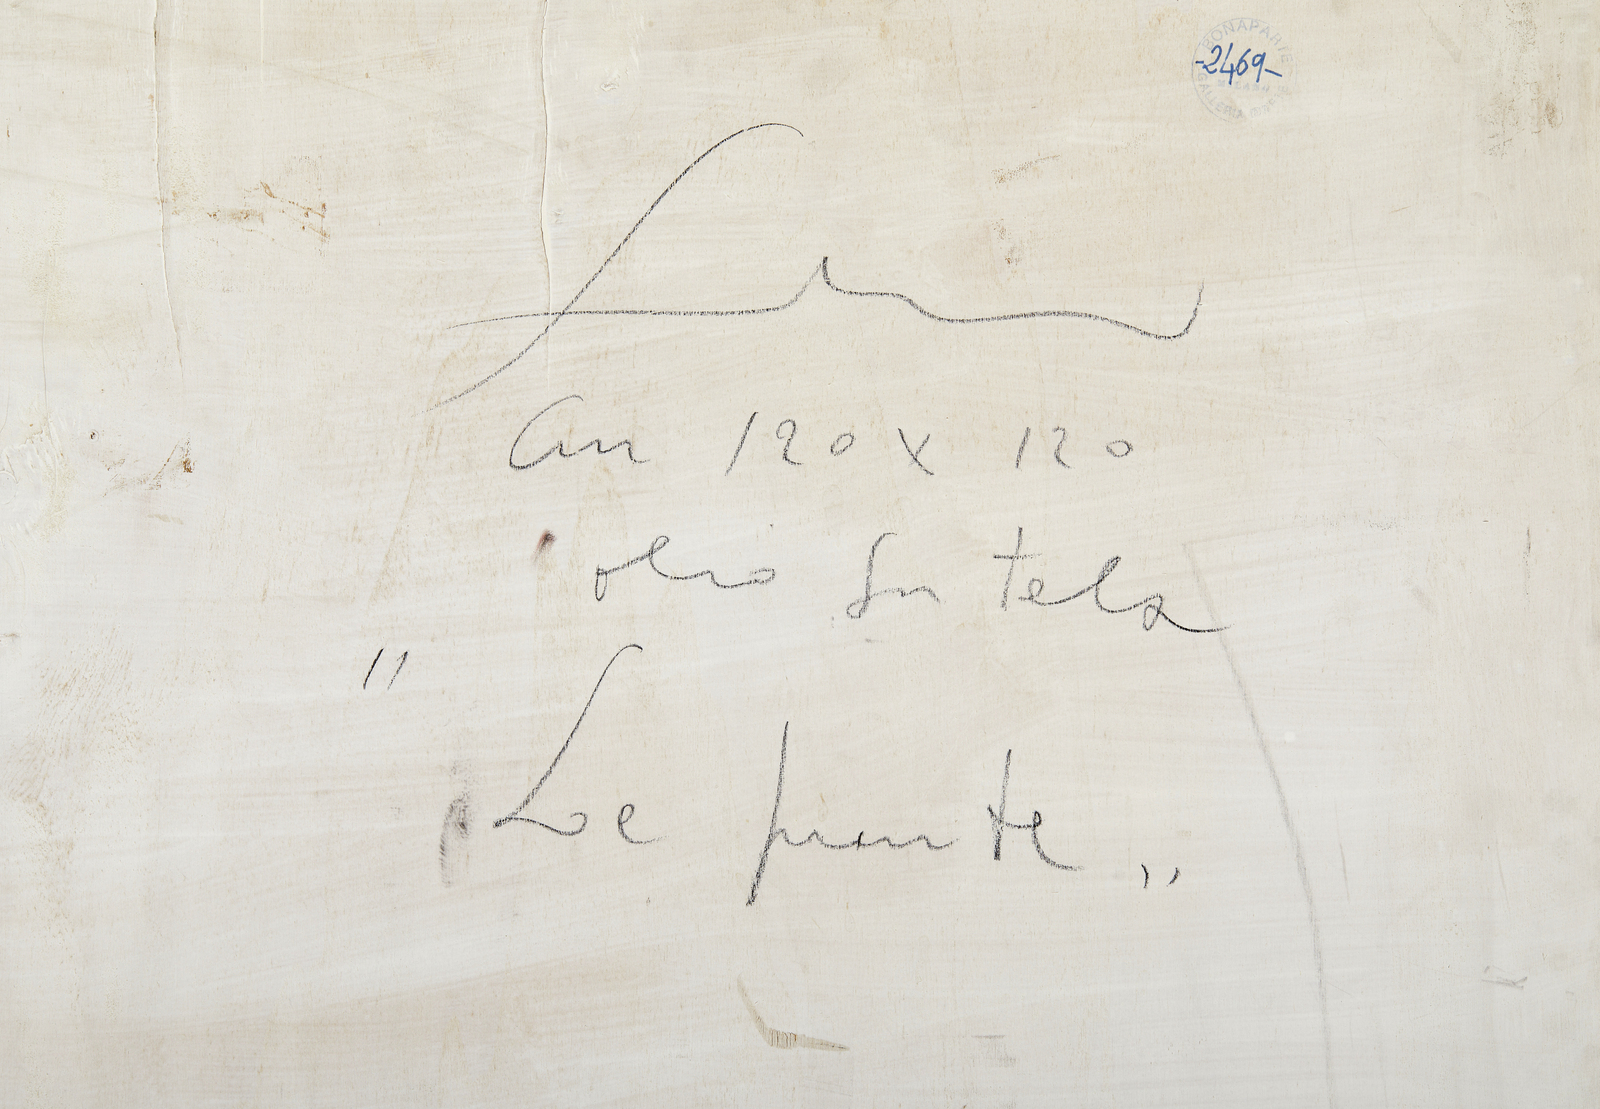 BONAPARTE
-2469-
GALLERIA
cm 120 x 120
olio su tela
"
Le punte "